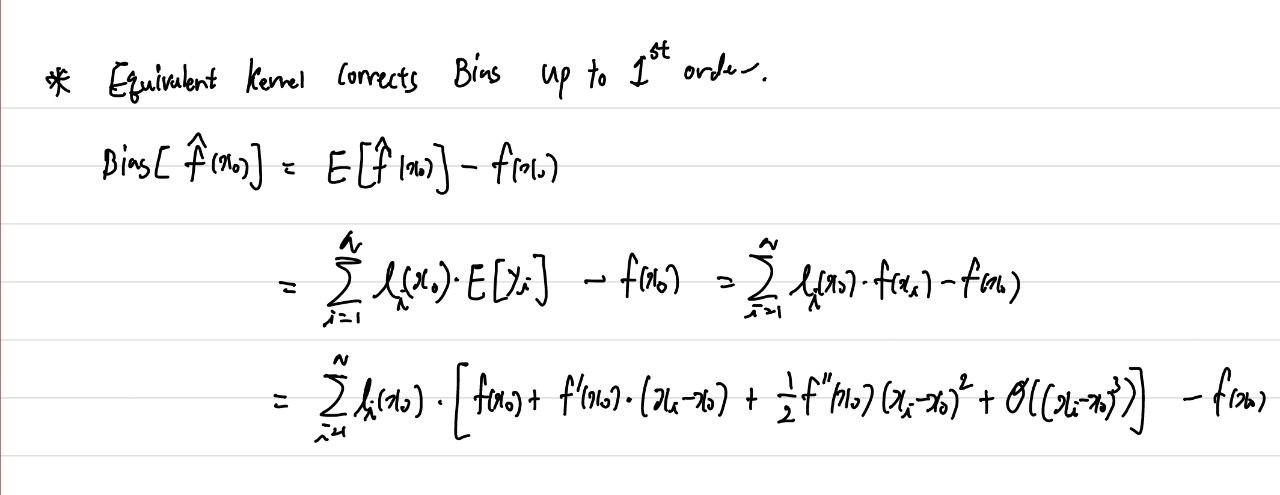 * Equivalent Kernel Corrects Bias up to 1st order.
Bias[ f̂(x₀)] = E[f̂(x₀)] - f(x₀)
= ∑ᵢ₌₁ᴺ lᵢ(x₀)·E[yᵢ] - f(x₀) = ∑ᵢ₌₁ᴺ lᵢ(x₀)·f(xᵢ) - f(x₀)
= ∑ᵢ₌₁ᴺ lᵢ(x₀)·[f(x₀) + f'(x₀)·(xᵢ-x₀) + ½f''(x₀)(xᵢ-x₀)² + O((xᵢ-x₀)³)] - f(x₀)